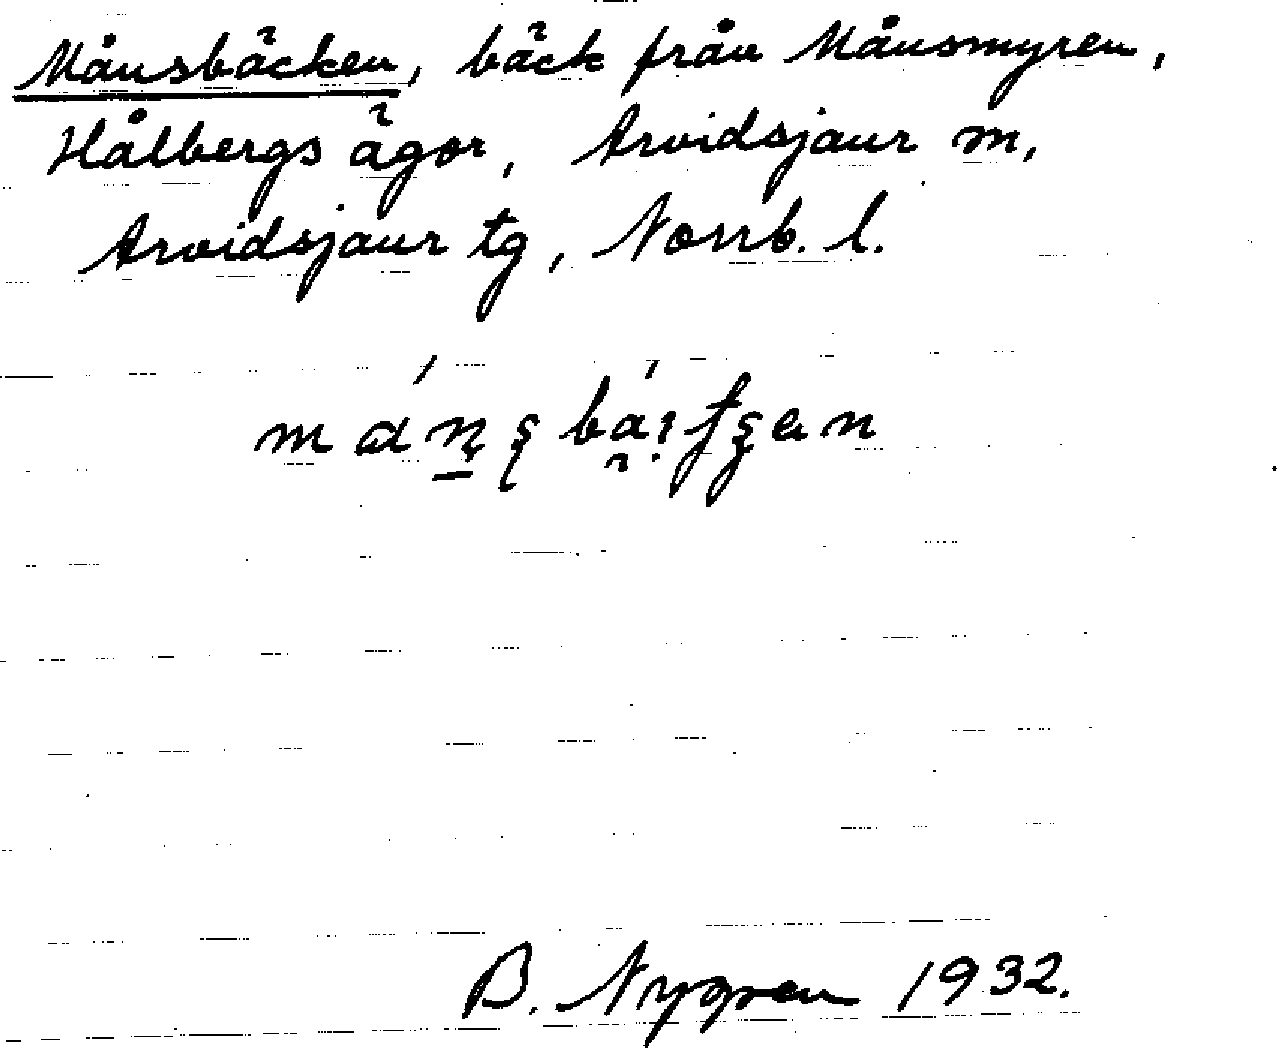 Månsbäcken, bäck från Månsmyren,
Hålbergs ägor, Arvidsjaur sn,
Arvidsjaur tg, Norrb. l.
B. Nygren 1932.